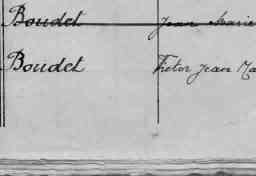 Boudet Jean Marie
Boudet Victor Jean Ma